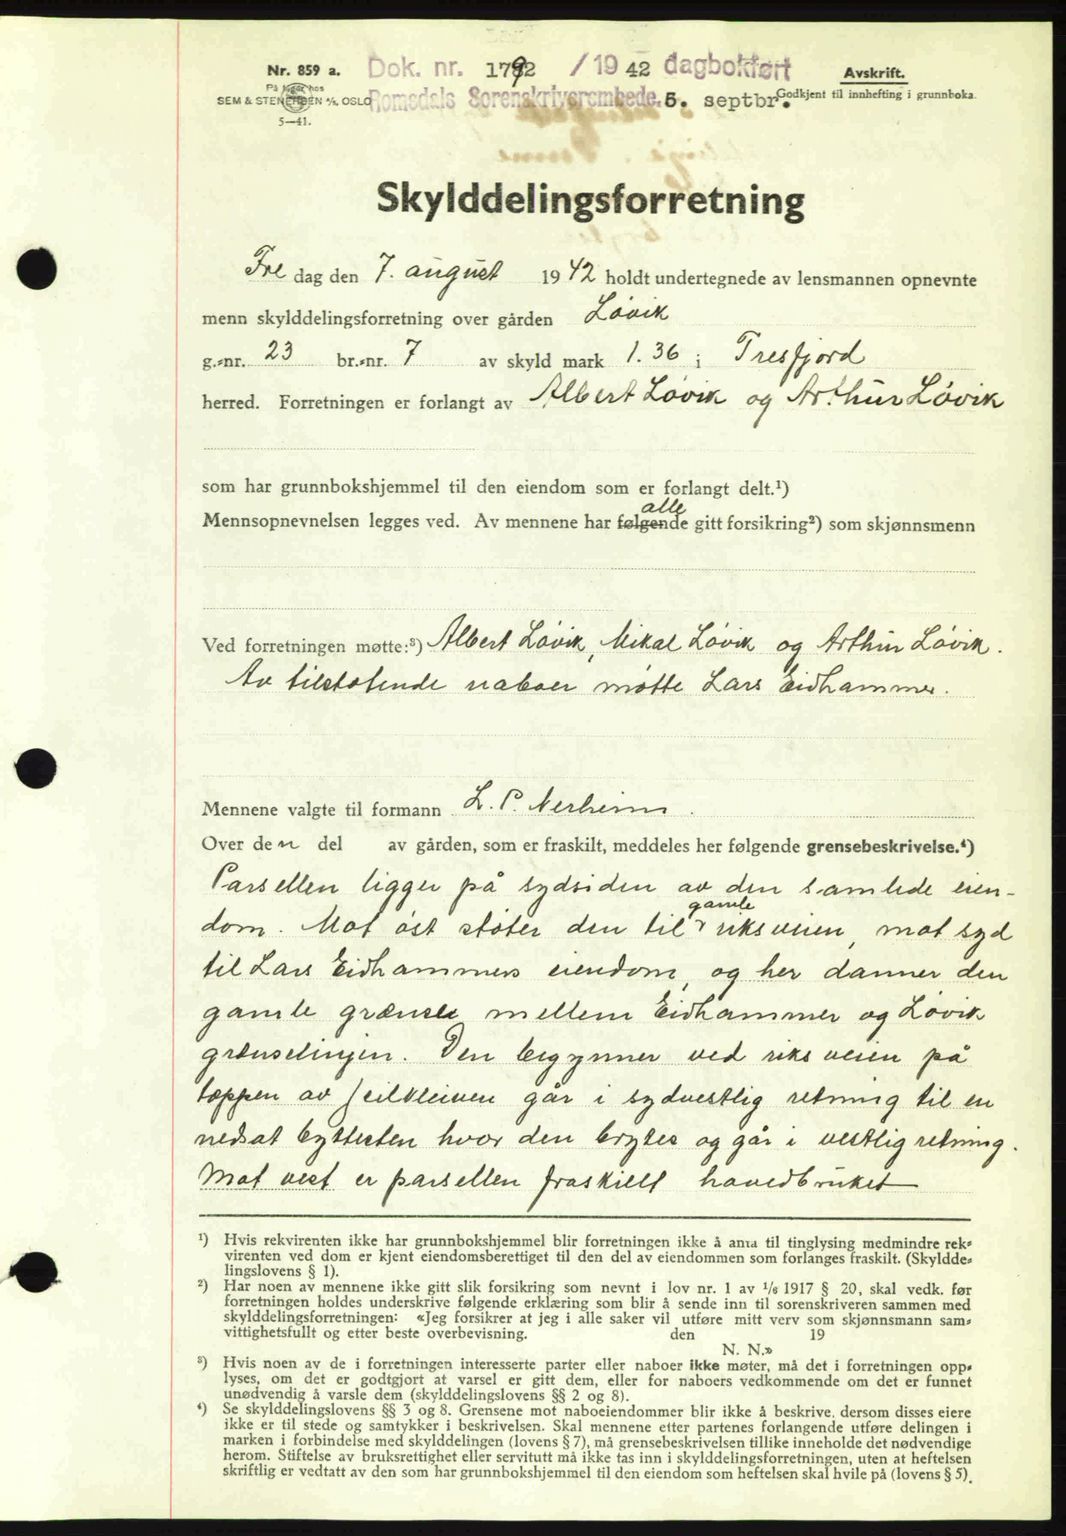 Nr. 859 a.
På lager hos
SEM & STENERSEN A/S, OSLO
5—41.
Dok. nr. 1792 /1942 dagbokført
Romsdals Sorenskriverembede. 5. septbr.
Avskrift.
Godkjent til innhefting i grunnboka.
Skylddelingsforretning
Fre dag den 7. august 1942 holdt undertegnede av lensmannen opnevnte
menn skylddelingsforretning over gården Løvik
g.-nr. 23 br.-nr. 7 av skyld mark 1.36 i Tresfjord
herred. Forretningen er forlangt av Albert Løvik og Arthur Løvik
som har grunnbokshjemmel til den eiendom som er forlangt delt.¹)
alle
Mennsopnevnelsen legges ved. Av mennene har følgende gitt forsikring²) som skjønnsmenn
Ved forretningen møtte:³) Albert Løvik, Mikal Løvik og Arthur Løvik.
Av tilstøtende naboer møtte Lars Eidhammer.
Mennene valgte til formann L. P. Nerheim.
Over den del av gården, som er fraskilt, meddeles her følgende grensebeskrivelse.⁴)
Parsellen ligger på sydsiden av den samlede eien-
gamle
dom. Mot øst støter den til riksveien, mot syd
til Lars Eidhammers eiendom, og her danner den
gamle grænse mellem Eidhammer og Løvik
grænselinjen. Den begynner ved riksveien på
toppen av går i sydvestlig retning til en
nedsat byttesten hvor den brytes og går i vestlig retning.
Mot vest er parsellen fraskilt hovedbruket
¹) Hvis rekvirenten ikke har grunnbokshjemmel blir forretningen ikke å anta til tinglysing medmindre rek-
virenten ved dom er kjent eiendomsberettiget til den del av eiendommen som forlanges fraskilt. (Skyldde-
lingslovens § 1).
²) Har noen av mennene ikke gitt slik forsikring som nevnt i lov nr. 1 av 1/6 1917 § 20, skal vedk. før
forretningen holdes underskrive følgende erklæring som blir å sende inn til sorenskriveren sammen med
skylddelingsforretningen: «Jeg forsikrer at jeg i alle saker vil utføre mitt verv som skjønnsmann sam-
vittighetsfullt og etter beste overbevisning. den 19
N. N.»
³) Hvis noen av de i forretningen interesserte parter eller naboer ikke møter, må det i forretningen opp-
lyses, om det er godtgjort at varsel er gitt dem, eller for naboers vedkommende om det er funnet
unødvendig å varsle dem (skylddelingslovens §§ 2 og 8).
⁴) Se skylddelingslovens §§ 3 og 8. Grensene mot naboeiendommer blir ikke å beskrive, dersom disses eiere
ikke er til stede og samtykker i beskrivelsen. Skal mennene etter partenes forlangende utføre delingen i
marken i forbindelse med skylddelingen (lovens § 7), må grensebeskrivelsen tillike inneholde det nødvendige
herom. Stiftelse av bruksrettighet eller servitutt må ikke tas inn i skylddelingsforretningen, uten at heftelsen
skriftlig er vedtatt av den som har grunnbokshjemmel til den eiendom som heftelsen skal hvile på (lovens § 5).